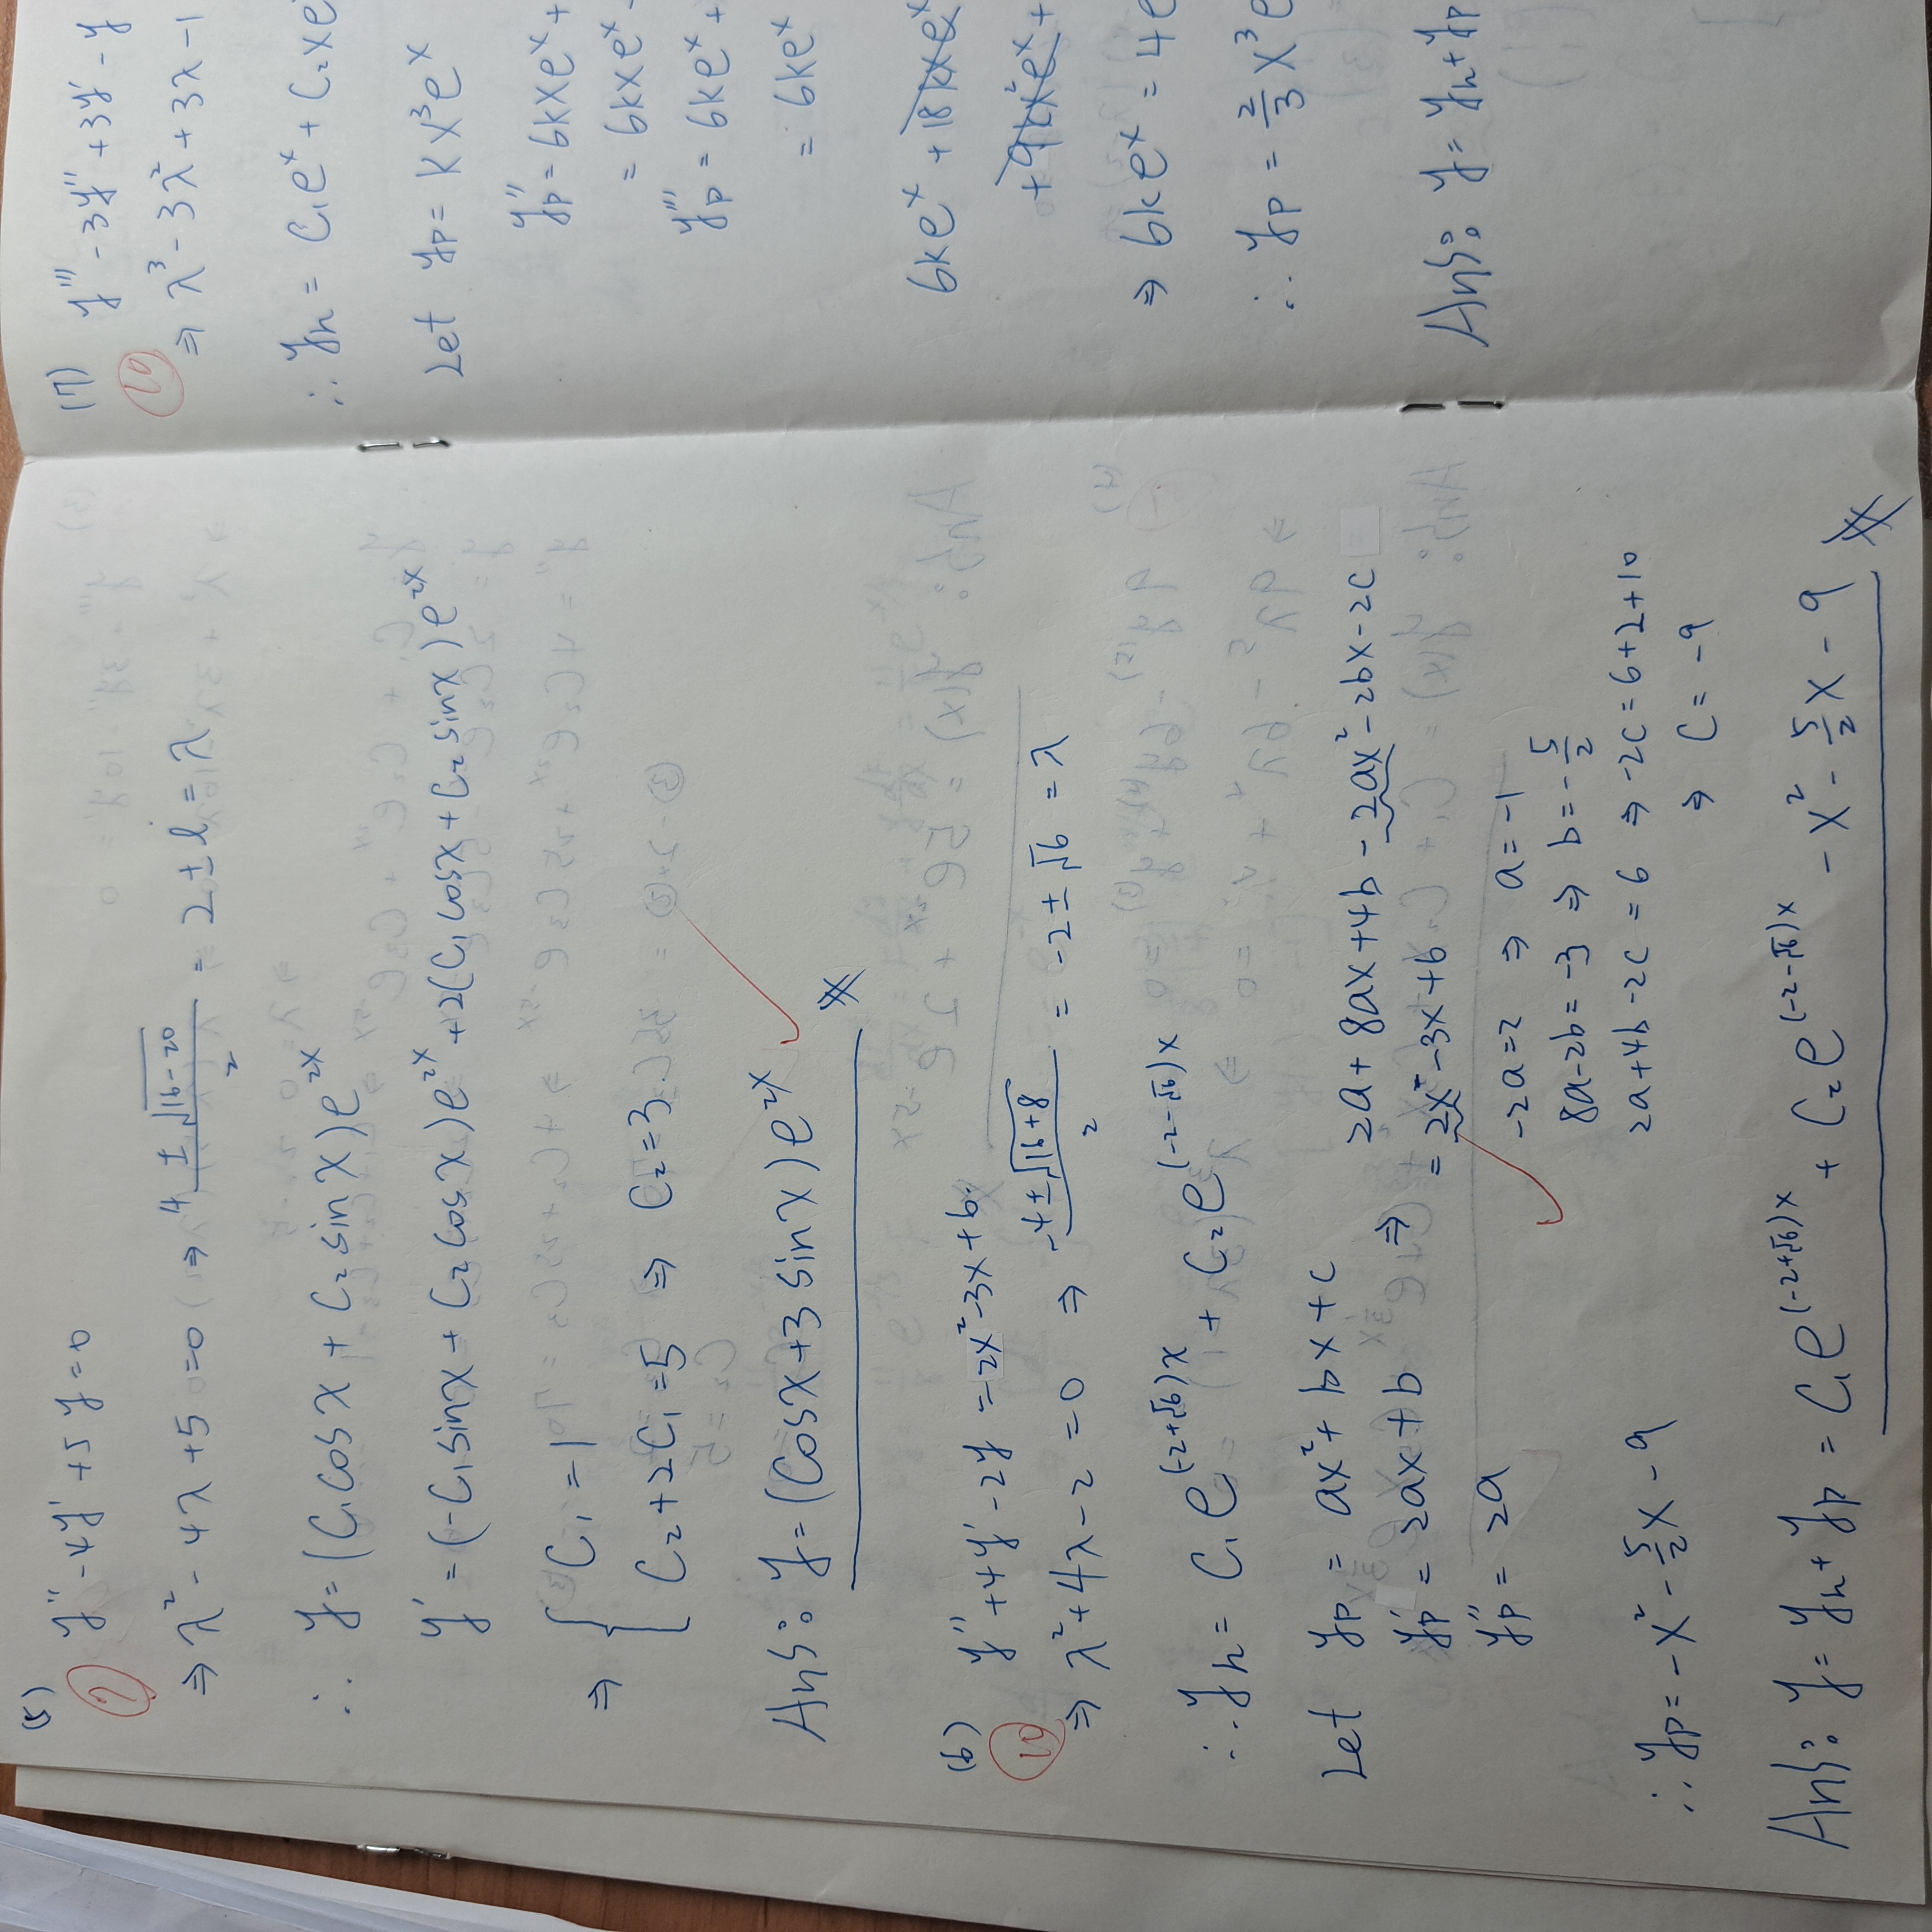 (5) y'' - 4y' + 5y = 0
7
⇒ λ² - 4λ + 5 = 0 ⇒ 4 ± √16-20 / 2 = 2 ± i = λ
∴ y = (C₁ cosx + C₂ sinx) e²ˣ
y' = (-C₁ sinx + C₂ cosx) e²ˣ + 2(C₁ cosx + C₂ sinx) e²ˣ
⇒ { C₁ = 1
C₂ + 2C₁ = 5 ⇒ C₂ = 3
Ans: y = (cosx + 3 sinx) e²ˣ
(6) y'' + 4y' - 2y = 2x² - 3x + 6.
10
⇒ λ² + 4λ - 2 = 0 ⇒ -4 ± √16+8 / 2 = -2 ± √6 = λ
∴ yₕ = C₁ e^(-2+√6)x + C₂ e^(-2-√6)x
Let yp = ax² + bx + c
yp' = 2ax + b ⇒ 2a + 8ax + 4b - 2ax² - 2bx - 2c
yp'' = 2a
= 2x² - 3x + 6
-2a = 2 ⇒ a = -1
8a - 2b = -3 ⇒ b = -5/2
2a + 4b - 2c = 6 ⇒ -2c = 6 + 2 + 10
⇒ c = -9
∴ yp = -x² - 5/2 x - 9
Ans: y = yₕ + yp = C₁ e^(-2+√6)x + C₂ e^(-2-√6)x - x² - 5/2 x - 9
(7) y''' - 3y'' + 3y' - y
10
⇒ λ³ - 3λ² + 3λ - 1
∴ yₕ = C₁eˣ + C₂xeˣ
Let yp = kx³eˣ
yp'' = 6kxeˣ +
= 6kxeˣ
yp''' = 6keˣ +
= 6keˣ
6keˣ + 18kxeˣ
+ 9kx²eˣ +
⇒ 6keˣ = 4e
∴ yp = 2/3 x³e
Ans: y = yₕ + yp